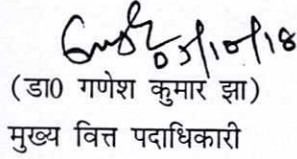 03/10/18
(डा0 गणेश कुमार झा)
मुख्य वित्त पदाधिकारी